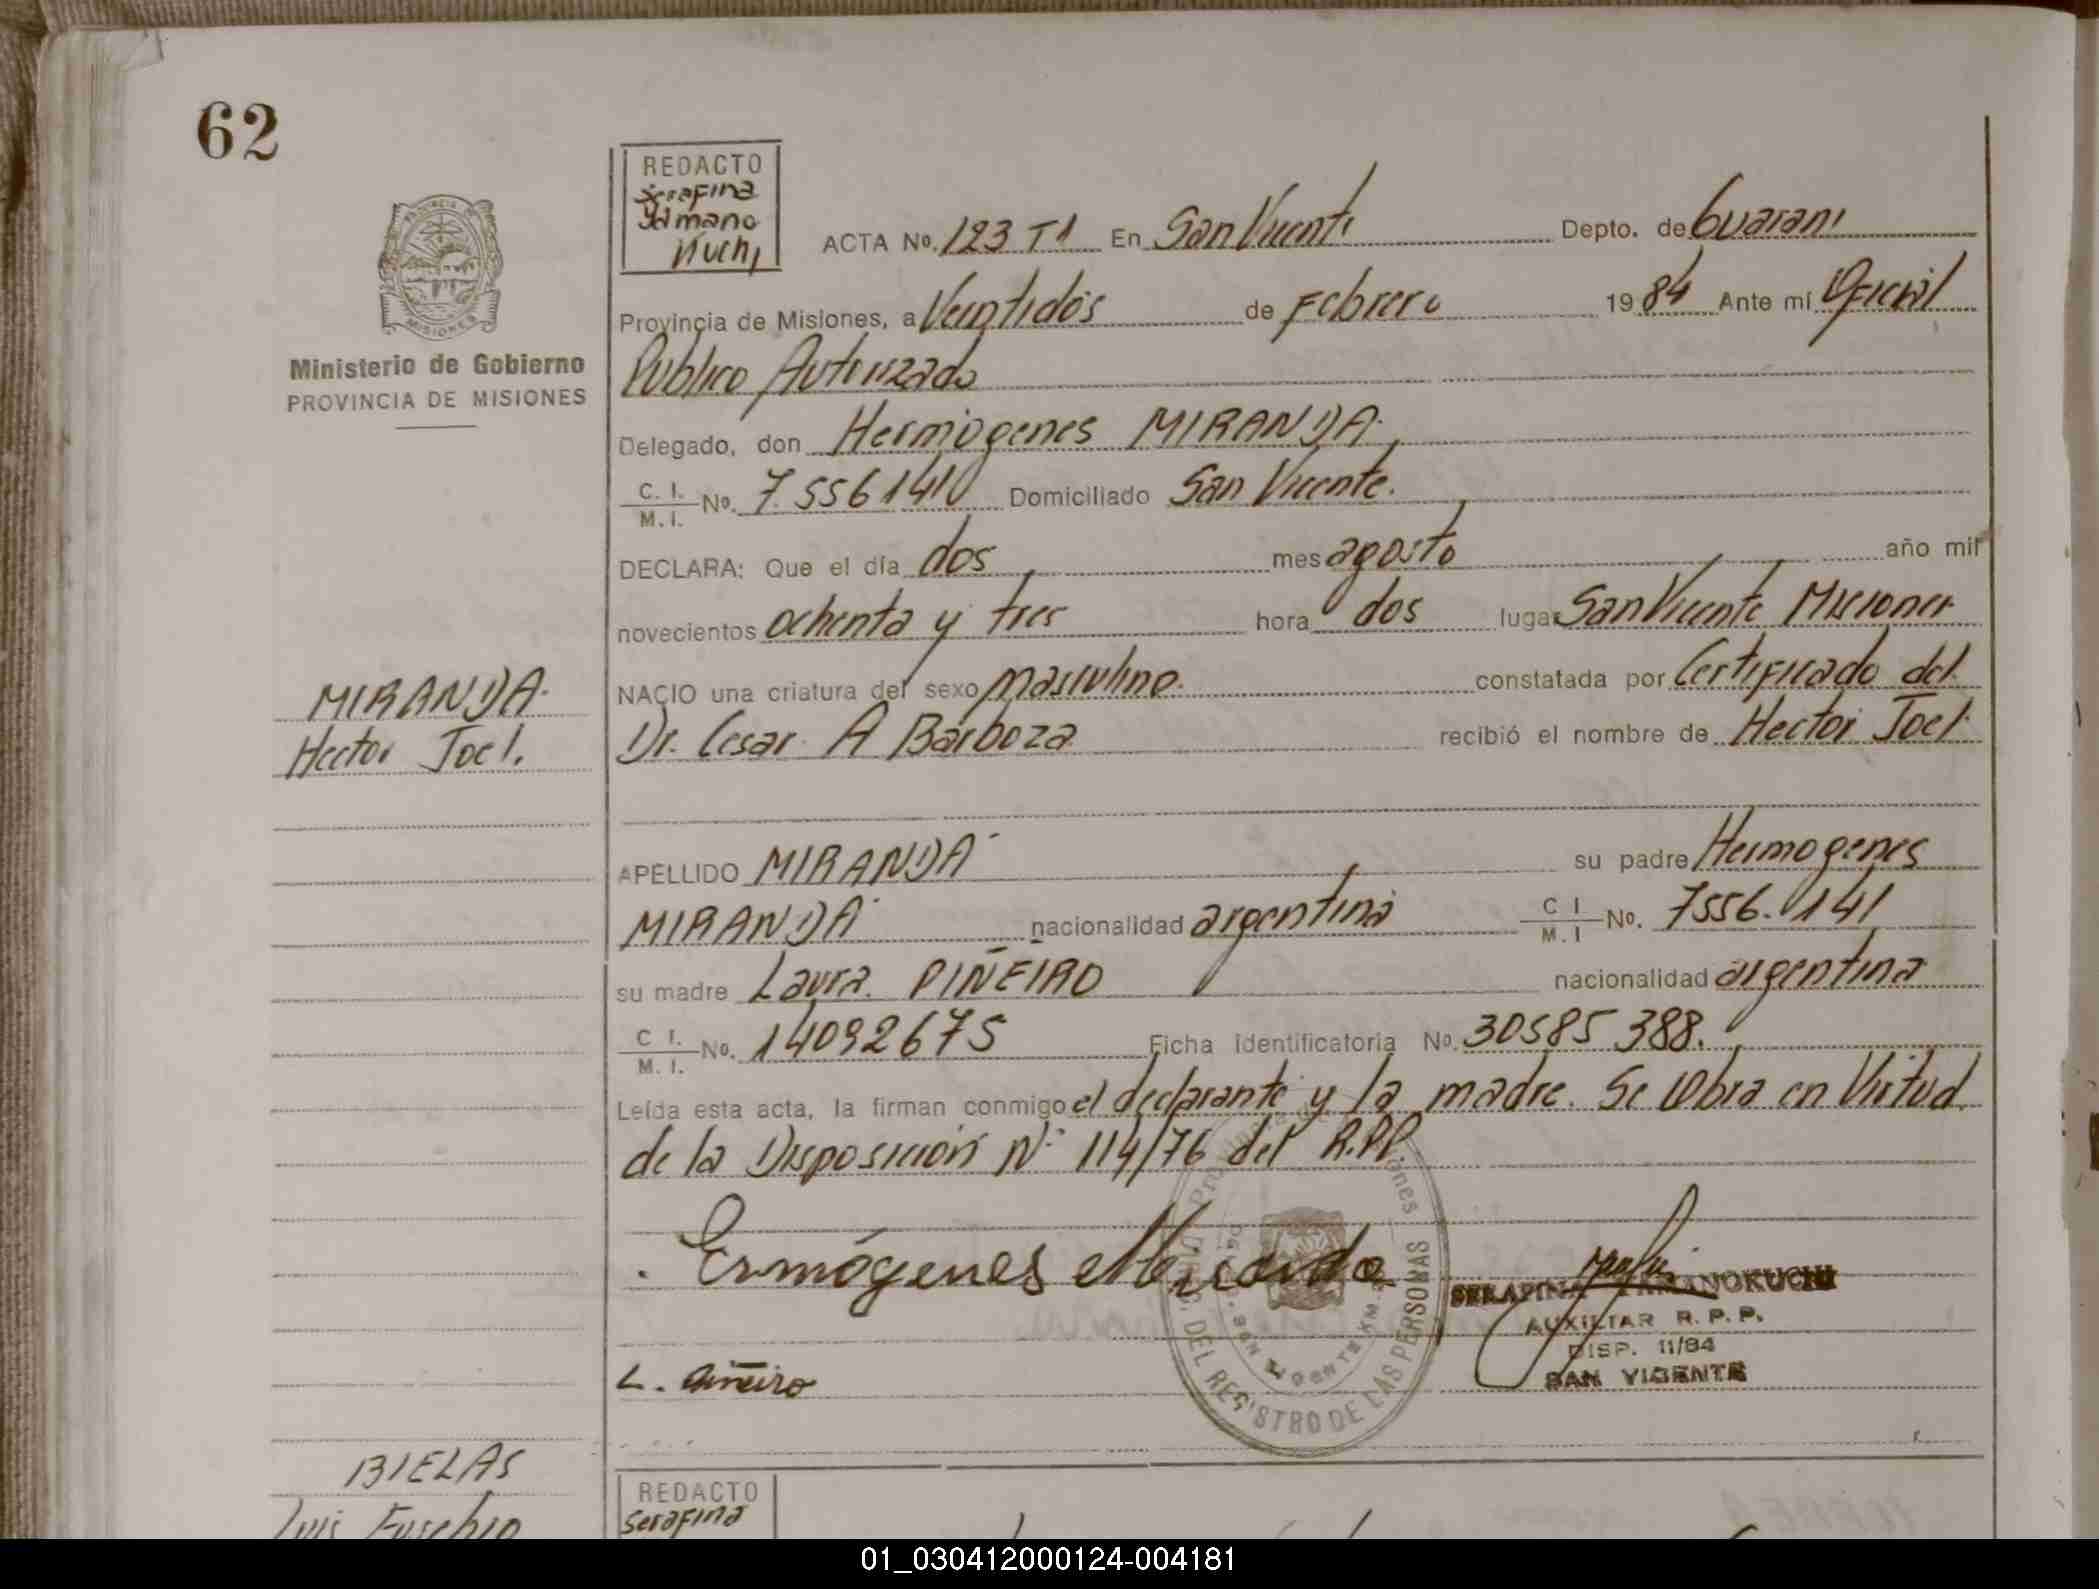 62
REDACTO
Serafina
Yamano
Kuchi
ACTA No. 123 T1 En San Vicente Depto. de Guarani
Provincia de Misiones, a Veintidós de Febrero 1984 Ante mí Oficial
Publico Autorizado
Ministerio de Gobierno
PROVINCIA DE MISIONES
Delegado, don Hermogenes MIRANDA
C. I. M. I. No. 7.556141 Domiciliado San Vicente.
DECLARA: Que el día dos mes agosto año mil
novecientos ochenta y tres hora dos lugar San Vicente Misiones
MIRANDA
Hector Joel.
NACIO una criatura del sexo masculino. constatada por Certificado del
Dr. Cesar A Barboza recibió el nombre de Hector Joel
APELLIDO MIRANDA su padre Hermogenes
MIRANDA nacionalidad argentina C I M. I No. 7556.141
su madre Laura PIÑEIRO nacionalidad argentina
C I. M. I. No. 14092675 Ficha Identificatoria No. 30585388.
Leída esta acta, la firman conmigo el declarante y la madre. Se labra en Virtud
de la Disposición Nº 114/76 del R.P.P.
Ermógenes Miranda
SERAFINA YAMANOKUCHI
AUXILIAR R. P. P.
DISP. 11/84
SAN VICENTE
L. Piñeiro
DEL REGISTRO DE LAS PERSONAS
BIELAS
Luis Eusebio
REDACTO
Serafina
01_030412000124-004181